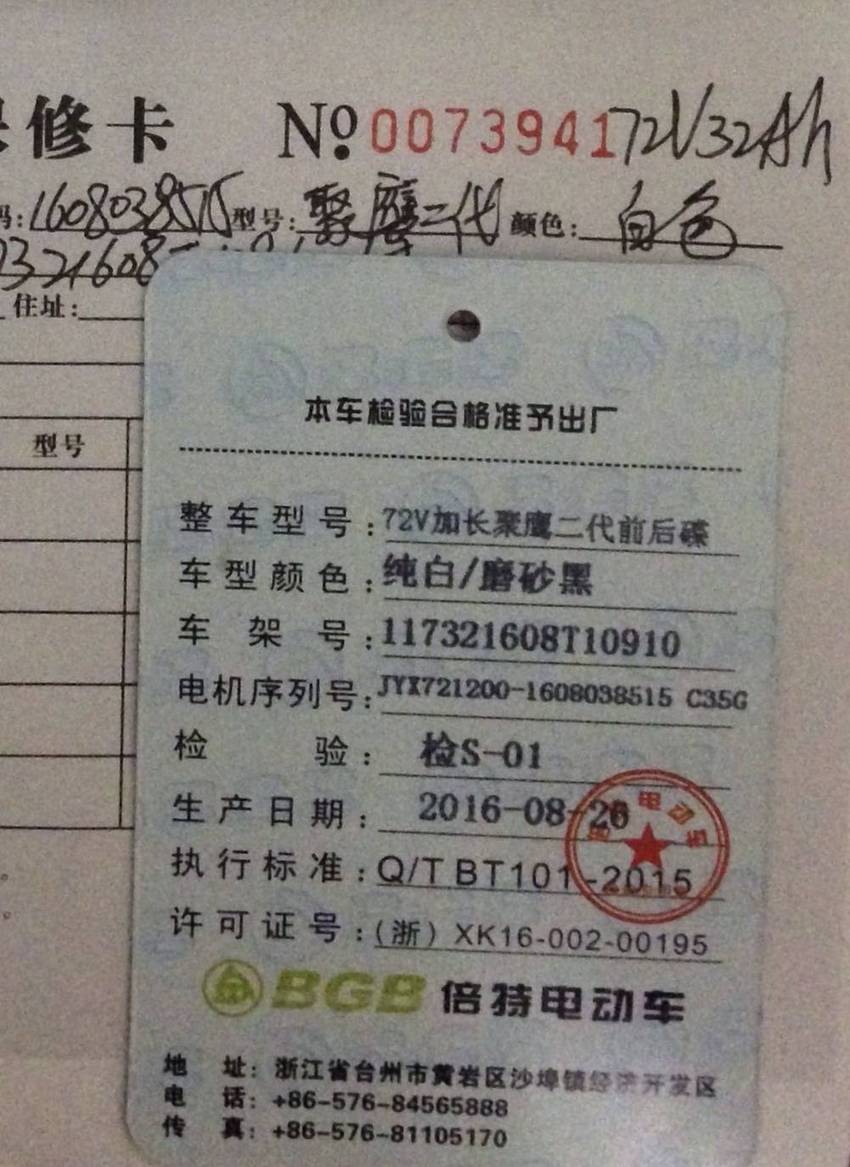 修卡 No 0073941 72V32Ah
码:1608038515 型号:聚鹰二代 颜色:白色
住址:
型号
本车检验合格准予出厂
整车型号:72V加长聚鹰二代前后碟
车型颜色:纯白/磨砂黑
车架号:117321608T10910
电机序列号:JYX721200-1608038515 C35G
检验:检S-01
生产日期:2016-08-26
执行标准:Q/T BT101-2015
许可证号:(浙)XK16-002-00195
BGB 倍特电动车
地址:浙江省台州市黄岩区沙埠镇经济开发区
电话:+86-576-84565888
传真:+86-576-81105170
电动车